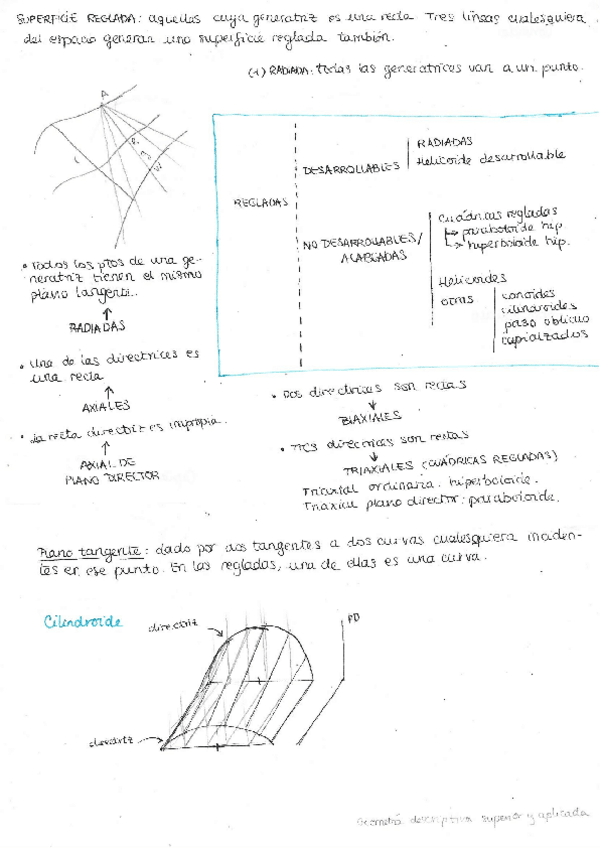 SUPERFICIE REGLADA: aquellas cuya generatriz es una recta. Tres líneas cualesquiera
del espacio generan una superficie reglada también.
(*) RADIADA: Todas las generatrices van a un punto.
REGLADAS
DESARROLLABLES
RADIADAS
Helicoide desarrollable
NO DESARROLLABLES/
ALABEADAS
Cuádricas regladas
paraboloide hip
hiperboloide hip.
Helicoides
otras
conoides
cilindroides
paso oblicuo
capialzados
• Todos los ptos de una ge-
neratriz tienen el mismo
plano tangente.
RADIADAS
• Una de las directrices es
una recta
AXIALES
• La recta directriz es impropia.
AXIAL DE
PLANO DIRECTOR
• Dos directrices son rectas
BIAXIALES
• Tres directrices son rectas
TRIAXIALES (CUÁDRICAS REGLADAS)
Triaxial ordinaria: hiperboloide.
Triaxial plano director: paraboloide.
Plano tangente: dado por dos tangentes a dos curvas cualesquiera inciden-
tes en ese punto. En las regladas, una de ellas es una curva.
Cilindroide
directriz
PD
directriz
Geometría descriptiva superior y aplicada